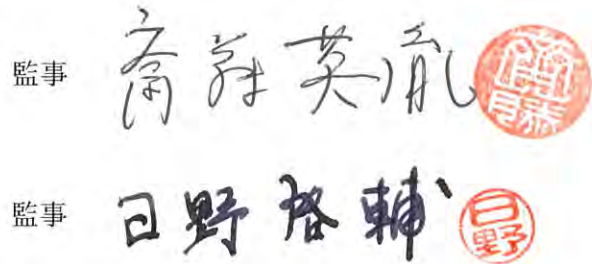 監事 齋藤英胤 齋藤
監事 日野啓輔 日野